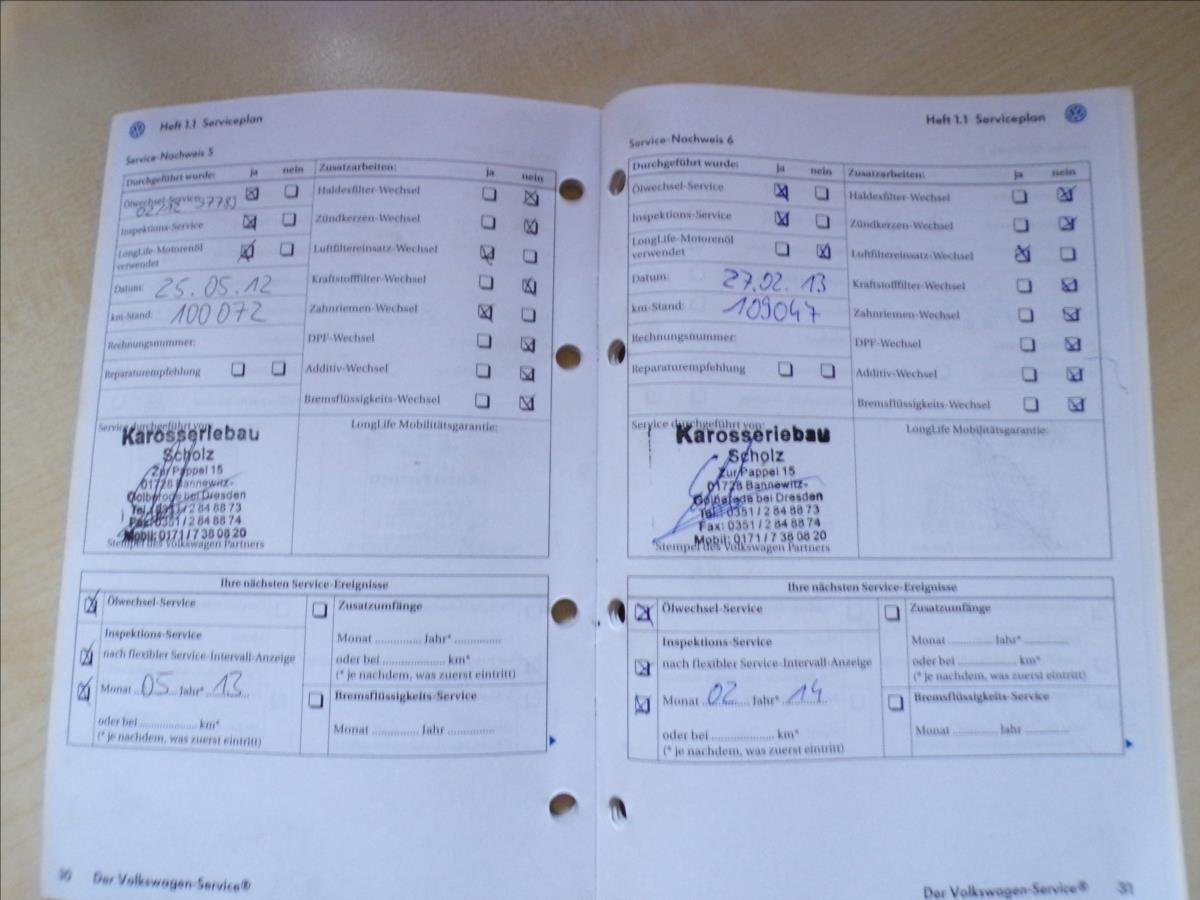 Heft 1.1 Serviceplan
Service-Nachweis 5
Durchgeführt wurde: ja nein Zusatzarbeiten: ja nein
Ölwechsel-Service Haldexfilter-Wechsel
02/12
Inspektions-Service Zündkerzen-Wechsel
LongLife-Motorenöl Luftfiltereinsatz-Wechsel
verwendet
Datum: 25.05.12 Kraftstofffilter-Wechsel
km-Stand: 100072 Zahnriemen-Wechsel
Rechnungsnummer: DPF-Wechsel
Reparaturempfehlung Additiv-Wechsel
Bremsflüssigkeits-Wechsel
Service durchgeführt von: LongLife Mobilitätsgarantie:
Karosseriebau
Scholz
Zur Pappel 15
01728 Bannewitz-
Golberode bei Dresden
Tel.: 0351 / 2 84 88 73
Fax: 0351 / 2 84 88 74
Mobil: 0171 / 7 38 08 20
Stempel des Volkswagen Partners
Ihre nächsten Service-Ereignisse
Ölwechsel-Service Zusatzumfänge
Inspektions-Service Monat .............. Jahr* ..............
nach flexibler Service-Intervall-Anzeige oder bei .................... km*
(* je nachdem, was zuerst eintritt)
Monat 05 Jahr* 13 Bremsflüssigkeits-Service
oder bei .................. km* Monat .............. Jahr ..............
(* je nachdem, was zuerst eintritt)
30 Der Volkswagen-Service®
Heft 1.1 Serviceplan
Service-Nachweis 6
Durchgeführt wurde: ja nein Zusatzarbeiten: ja nein
Ölwechsel-Service Haldexfilter-Wechsel
Inspektions-Service Zündkerzen-Wechsel
LongLife-Motorenöl Luftfiltereinsatz-Wechsel
verwendet
Datum: 27.02.13 Kraftstofffilter-Wechsel
km-Stand: 109047 Zahnriemen-Wechsel
Rechnungsnummer: DPF-Wechsel
Reparaturempfehlung Additiv-Wechsel
Bremsflüssigkeits-Wechsel
Service durchgeführt von: LongLife Mobilitätsgarantie:
Karosseriebau
Scholz
Zur Pappel 15
01728 Bannewitz-
Golberode bei Dresden
Tel.: 0351 / 2 84 88 73
Fax: 0351 / 2 84 88 74
Mobil: 0171 / 7 38 08 20
Stempel des Volkswagen Partners
Ihre nächsten Service-Ereignisse
Ölwechsel-Service Zusatzumfänge
Inspektions-Service Monat .............. Jahr* ..............
nach flexibler Service-Intervall-Anzeige oder bei .................... km*
(* je nachdem, was zuerst eintritt)
Monat 02 Jahr* 14 Bremsflüssigkeits-Service
oder bei .................. km* Monat .............. Jahr ..............
(* je nachdem, was zuerst eintritt)
Der Volkswagen-Service® 31